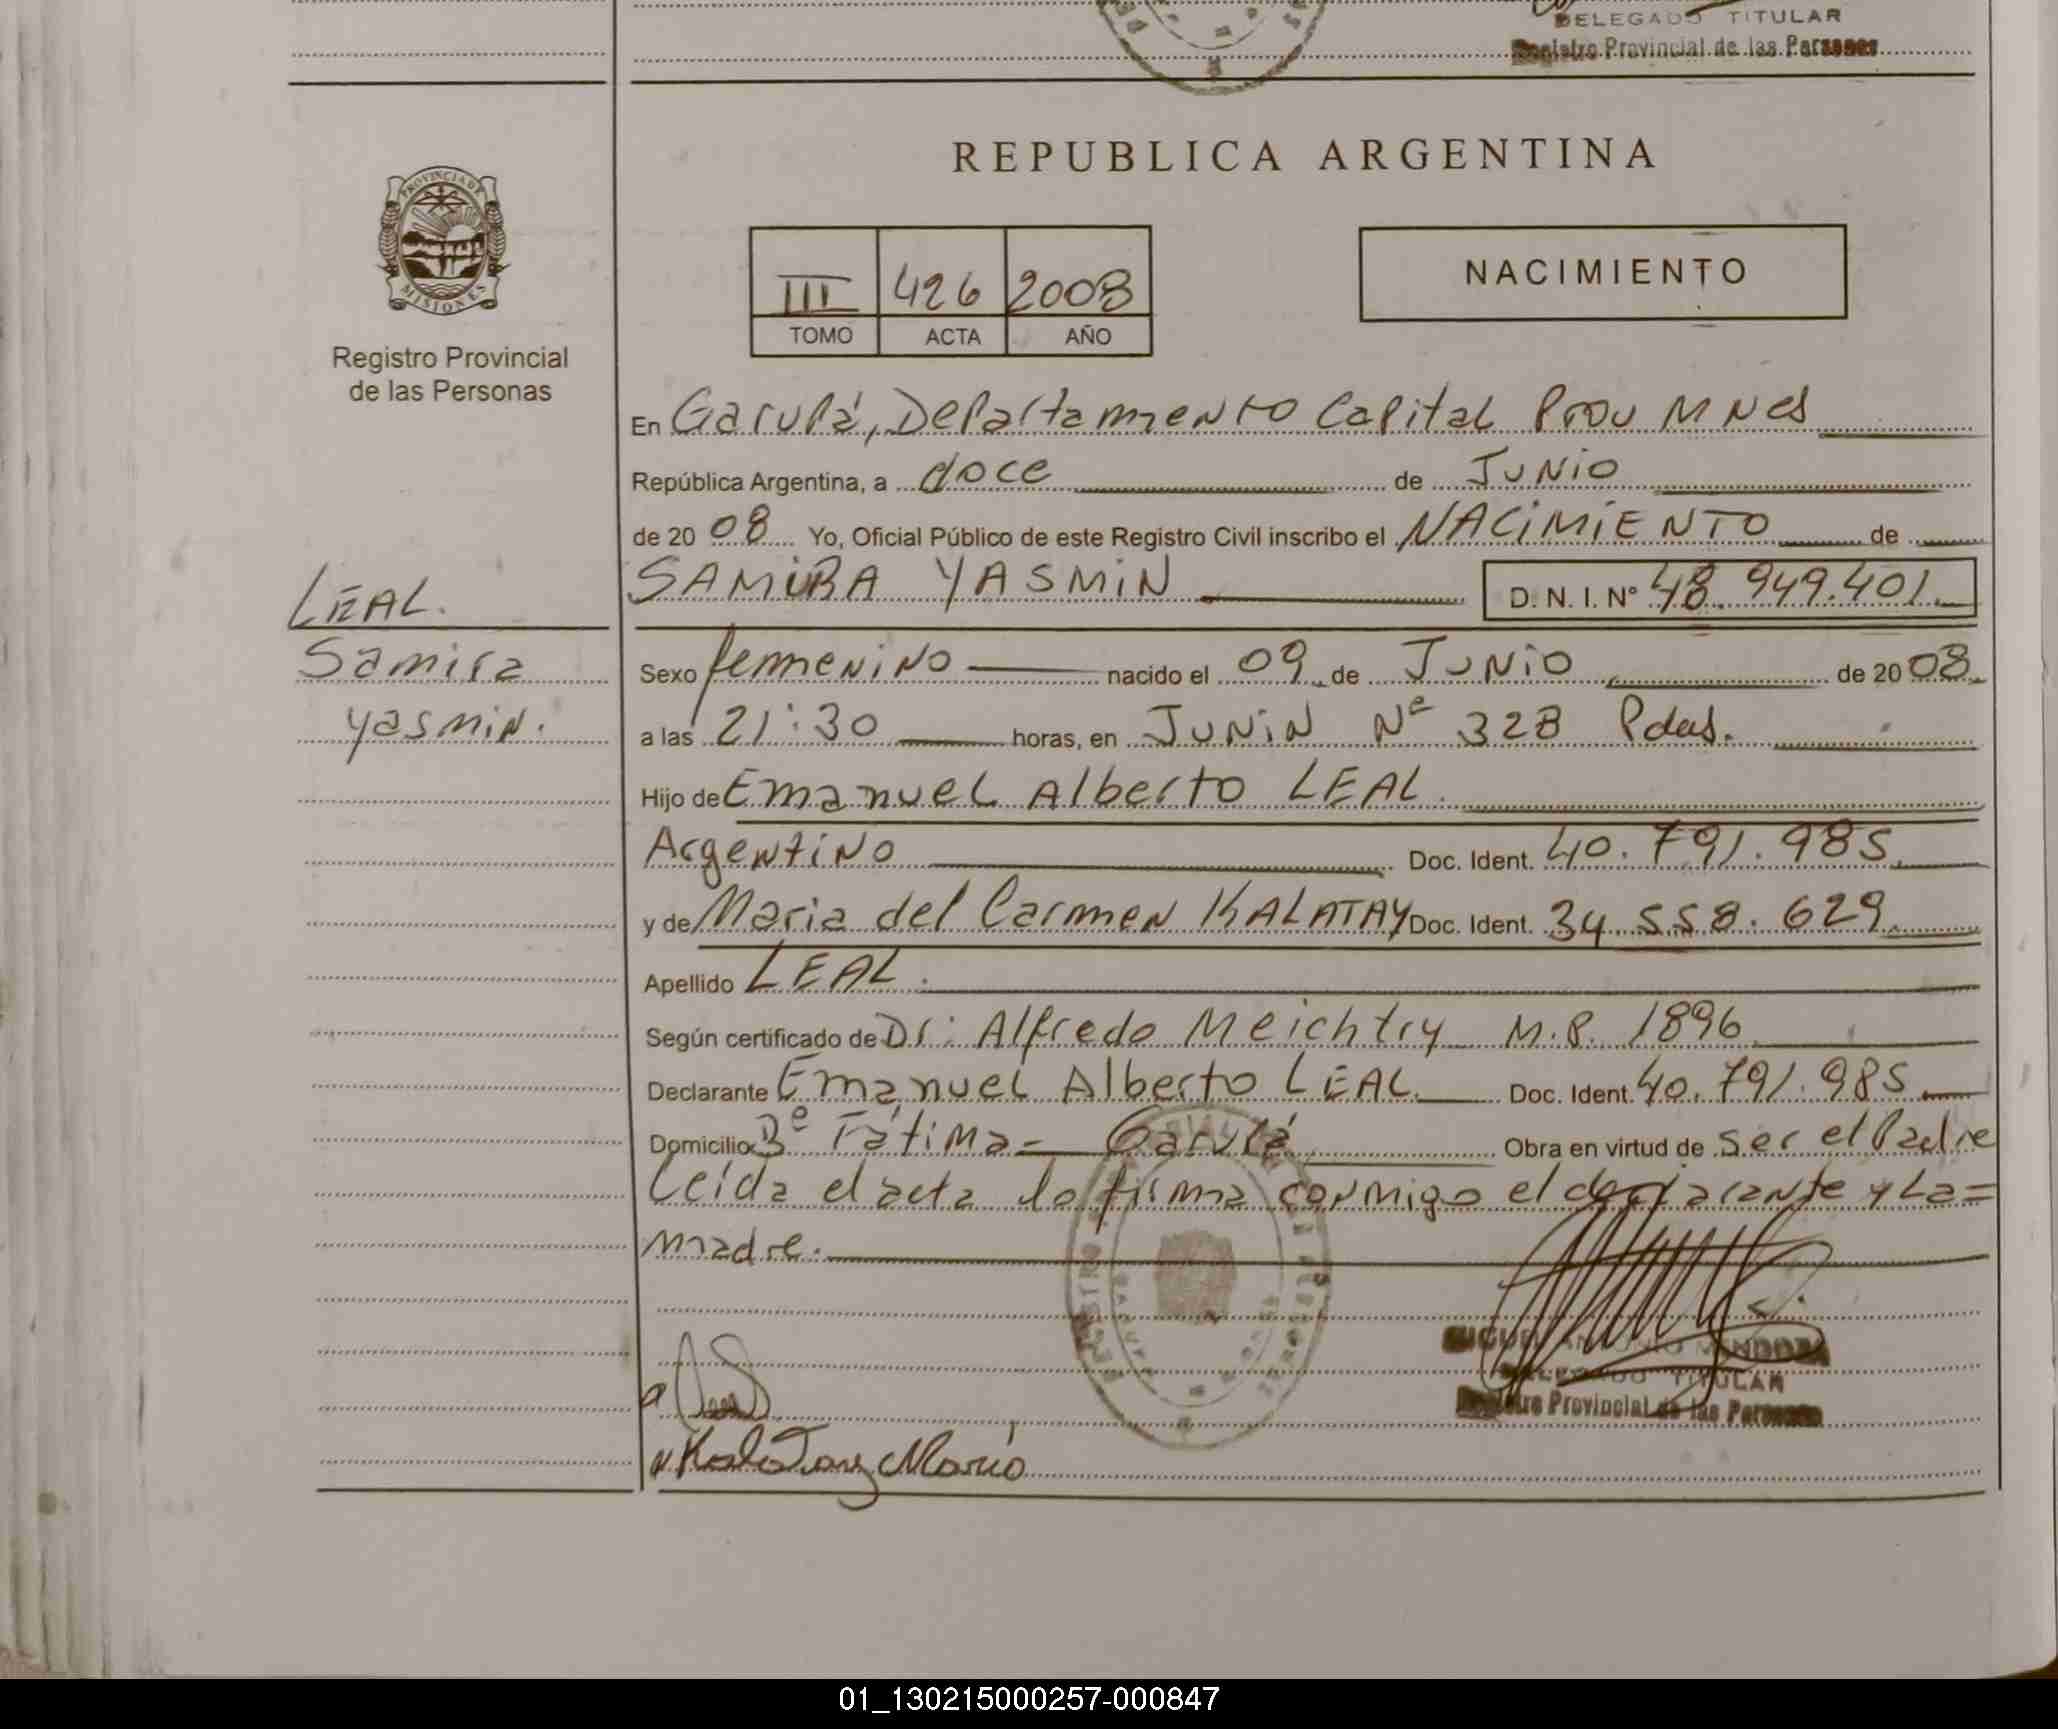 DELEGADO TITULAR
Registro Provincial de las Personas
PROVINCIA DE
MISIONES
Registro Provincial
de las Personas
REPUBLICA ARGENTINA
III 426 2008
TOMO ACTA AÑO
NACIMIENTO
En Garupá, Departamento Capital Prov Mnes
República Argentina, a doce de Junio
de 2008 Yo, Oficial Público de este Registro Civil inscribo el NACIMIENTO de
LEAL.
Samira
yasmin.
SAMIRA YASMIN D. N. I. N° 48.949.401
Sexo femenino nacido el 09 de Junio de 2008
a las 21:30 horas, en JUNIN Nº 328 Pdas.
Hijo de Emanuel Alberto LEAL.
Argentino Doc. Ident. 40.791.985
y de Maria del Carmen KALATAY Doc. Ident. 34.558.629
Apellido LEAL.
Según certificado de Dr: Alfredo Meichtry M.P. 1896
Declarante Emanuel Alberto LEAL Doc. Ident. 40.791.985
Domicilio Bº Fátima - Garupá Obra en virtud de ser el Padre
Leída el acta la firma conmigo el declarante y La=
madre.
MIGUEL ANTONIO MENDOZA
DELEGADO TITULAR
Registro Provincial de las Personas
Kalatay Maria
01_130215000257-000847